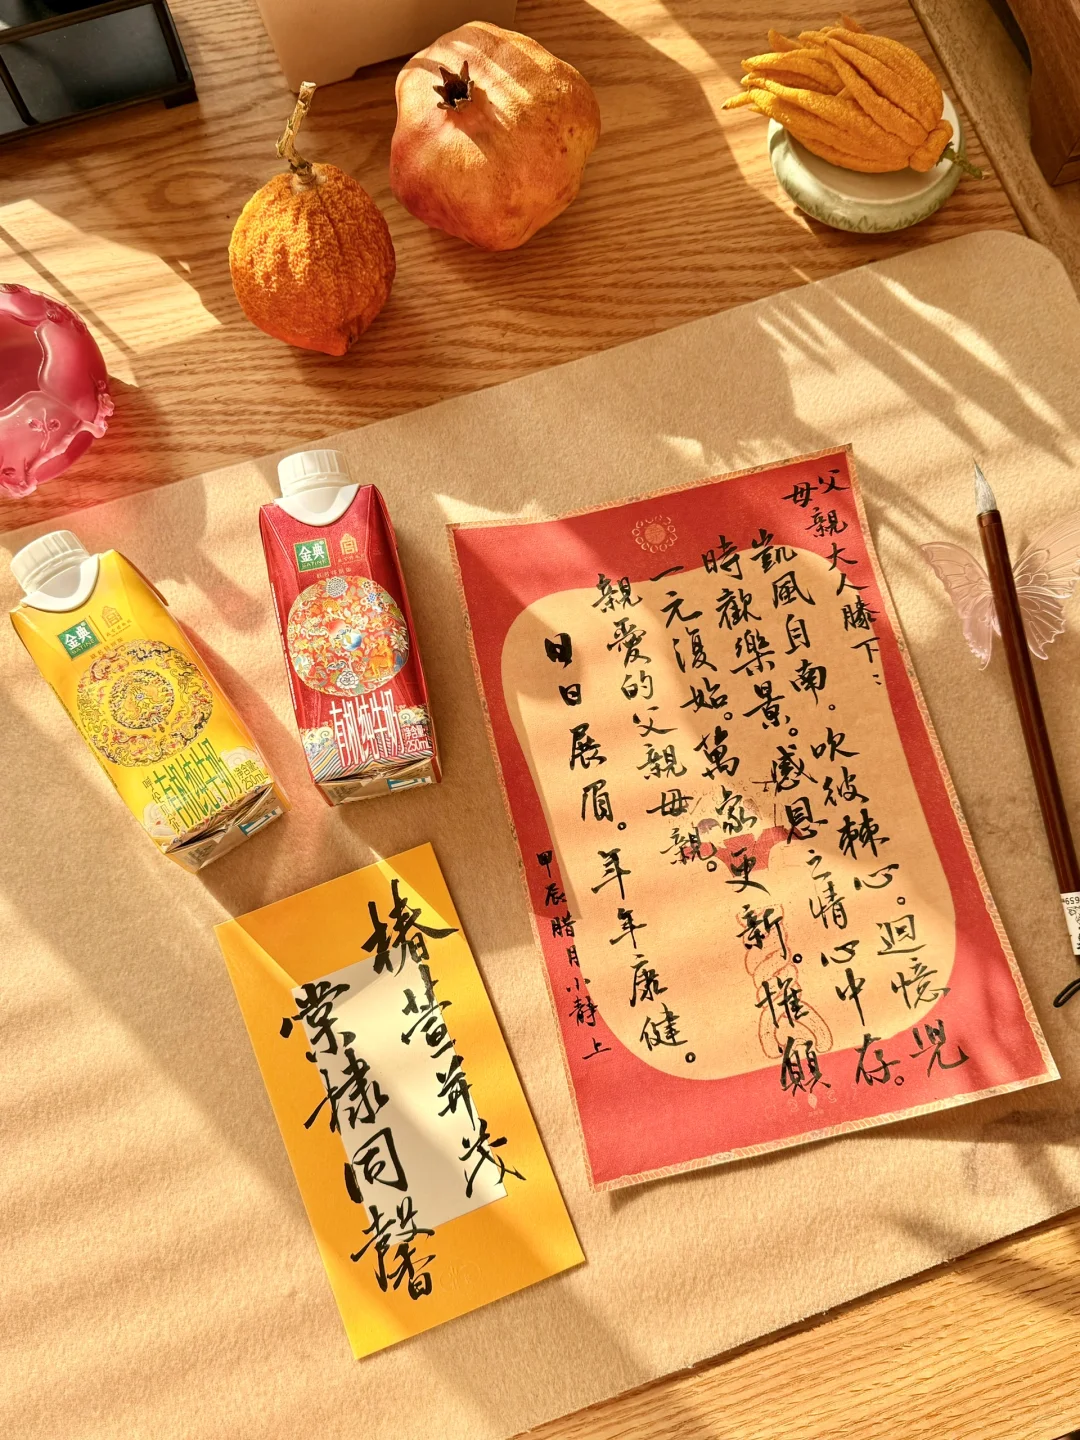 父母親大人膝下：
凱風自南。吹彼棘心。迴憶兒
時歡樂景。感恩之情心中存。
一元復始。萬家更新。惟願
親愛的父親母親。
日日展眉。年年康健。
甲辰腊月小静上
椿萱并茂
棠棣同馨
金典
SATINE
有机纯牛奶
净含量
250mL
金典
SATINE
有机纯牛奶
净含量
250mL